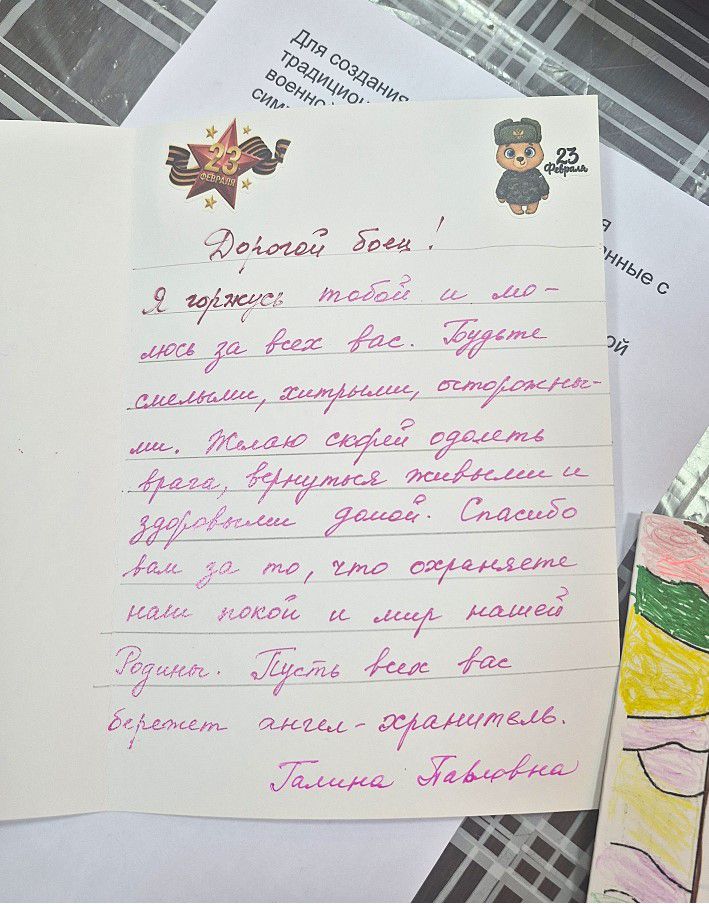 Для создания
традицион
военно
сим
23
ФЕВРАЛЯ
23
Февраля
я
нные с
ой
Дорогой боец!
Я горжусь тобой и мо-
люсь за всех вас. Будьте
смелыми, хитрыми, осторожны-
ми. Желаю скорей одолеть
врага, вернуться живыми и
здоровыми домой. Спасибо
вам за то, что охраняете
наш покой и мир нашей
Родины. Пусть всех вас
бережет ангел-хранитель.
Галина Павловна